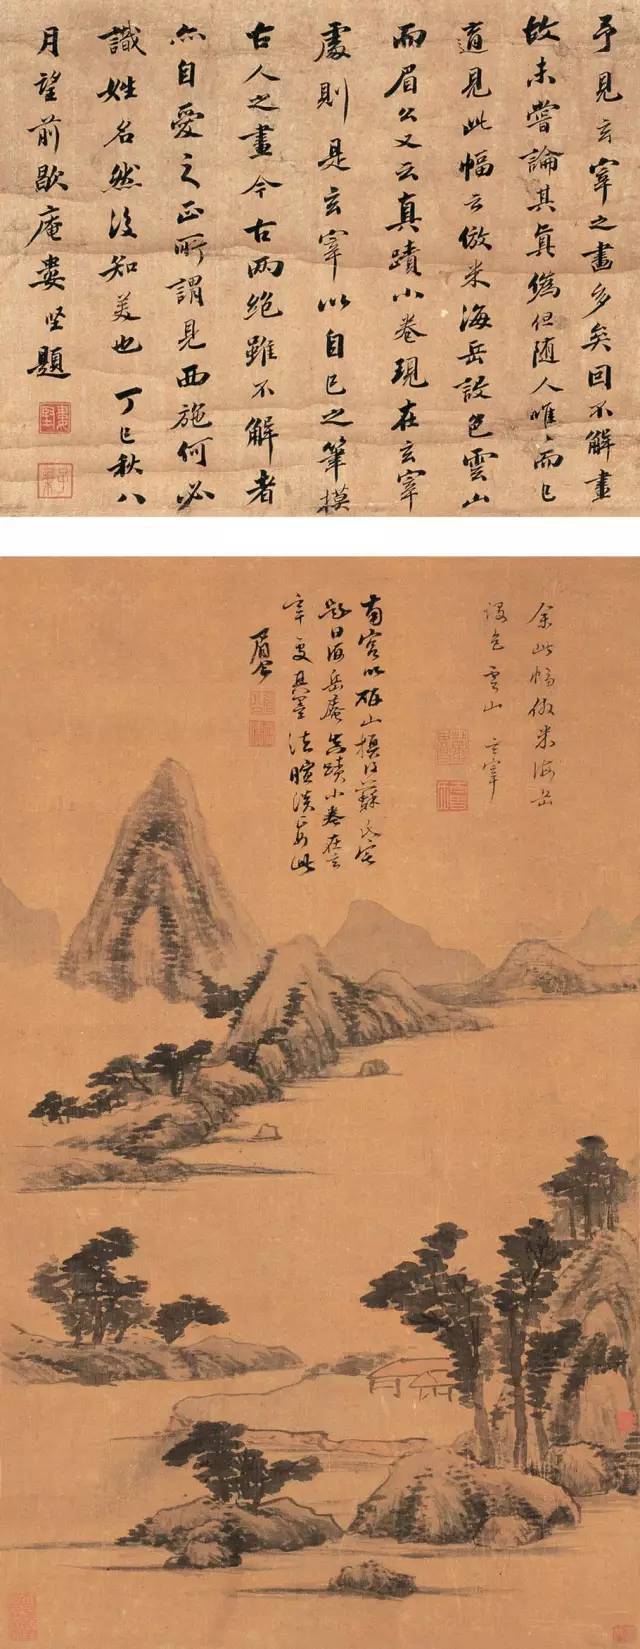 予見玄宰之畫多矣因不解畫
故未嘗論其真偽但随人唯唯而已
適見此幅云倣米海岳設色雲山
而眉公又云真蹟小卷現在玄宰
處則是玄宰以自己之筆摸
古人之畫今古兩絕雖不解者
亦自愛之正所謂見西施何必
識姓名然後知美也丁巳秋八
月望前歇庵婁堅題
余此幅倣米海岳
設色雲山玄宰
南宮以研山換得蘇氏宅
題曰海岳庵真蹟小卷在玄
宰處其墨法暗淡
眉公